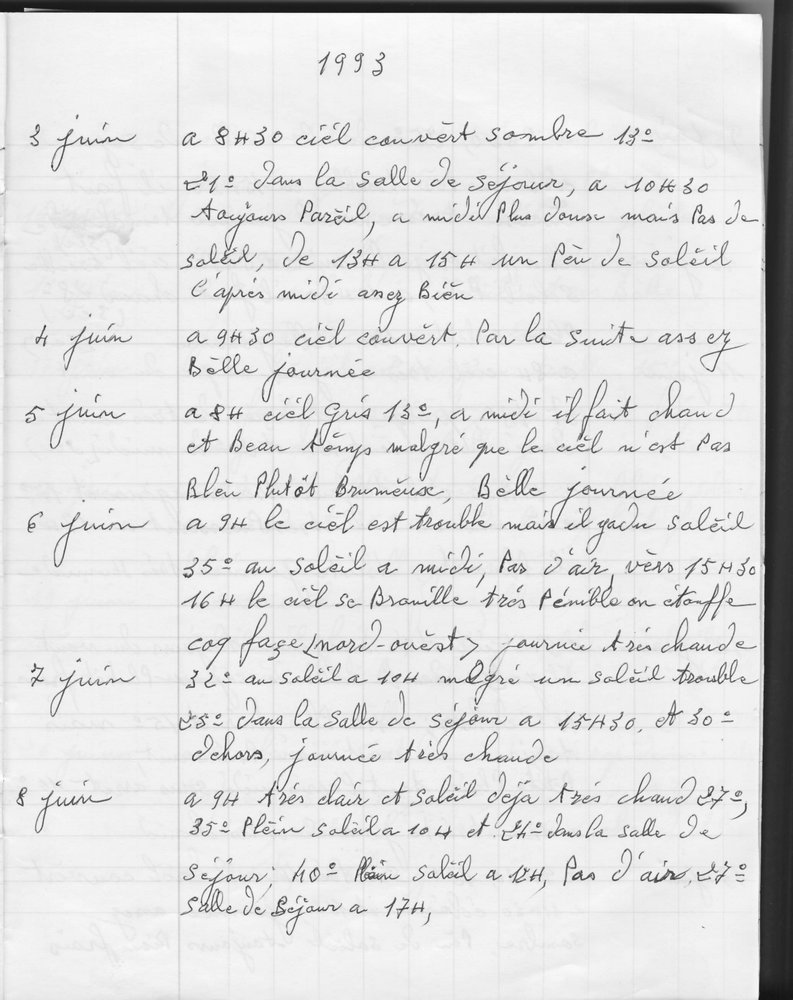 1993
3 juin a 8H30 ciél couvèrt sombre 13º
21º dans la salle de séjour, a 10H30
toujours Paréil, a midi Plus doux mais Pas de
soléil, de 13H a 15H un Pèu de soléil
l'aprés midi assez Bièn
4 juin a 9H30 ciél couvèrt. Par la suite assez
Bèlle journée
5 juin a 8H ciél Gris 13º, a midi il fait chaud
et Beau tèmps malgré que le ciél n'est Pas
Blèu Plutôt Brumèuse, Bèlle journée
6 juin a 9H le ciél est trouble mais il ya du soléil
35º au soléil a midi, Pas d'air, vèrs 15H30
16H le ciél se Brouille trés Pénible on étouffe
coq face (nord-ouèst) journée trés chaude
7 juin 32º au soléil a 10H malgré un soléil trouble
25º dans la salle de séjour a 15H30, et 30º
dehors, journée très chaude
8 juin a 9H trés clair et soléil déja trés chaud 27º,
35º Plèin soléil a 10H et 24º dans la salle de
séjour; 40º Plèin soléil a 12H, Pas d'air, 27º
salle de séjour a 17H,